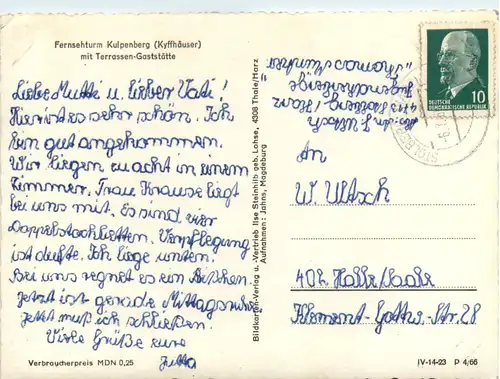 Fernsehturm Kulpenberg (Kyffhäuser)
mit Terrassen-Gaststätte
Liebe Mutti u. lieber Vati!
Hier ist es sehr schön. Ich
bin gut angekommen.
Wir liegen zu acht in einem
Zimmer. Frau Krause liegt
bei uns mit. Es sind vier
Doppelstockbetten. Verpflegung
ist dufte. Ich liege unten.
Bei uns regnet es ein Bißchen.
Jetzt ist gerade Mittagsruhe
Jetzt muß ich schließen.
Viele Grüße eure
Jutta
Verbraucherpreis MDN 0,25
Bildkarten-Verlag u. -Vertrieb Ilse Steinhilb geb. Lohse, 4308 Thale/Harz
Aufnahmen: Jahns, Magdeburg
4713 Stolberg / Harz
Jugendherberge
DEUTSCHE
DEMOKRATISCHE REPUBLIK
10
An
W. Utsch
402 Halle/Saale
Klement-Gottw.-Str. 28
IV-14-23 P 4/66